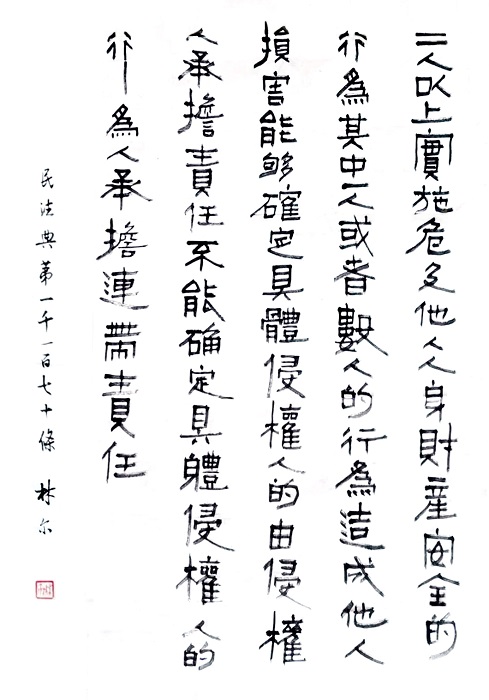 二人以上實施危及他人人身財產安全的
行為其中一人或者數人的行為造成他人
損害能夠確定具體侵權人的由侵權
人承擔責任不能确定具軆侵權人的
行為人承擔連帶責任
民法典第一千一百七十條 林尔